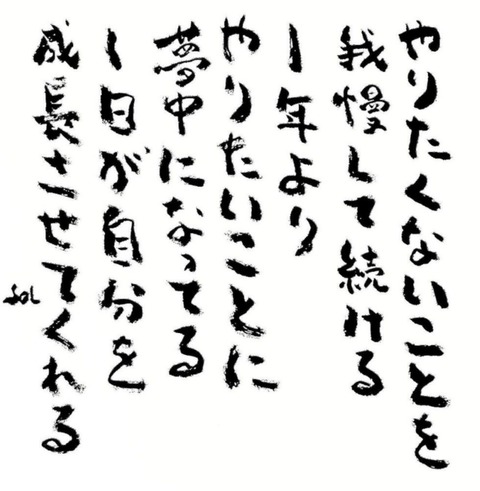 やりたくないことを
我慢して続ける
1年より
やりたいことに
夢中になってる
1日が自分を
成長させてくれる